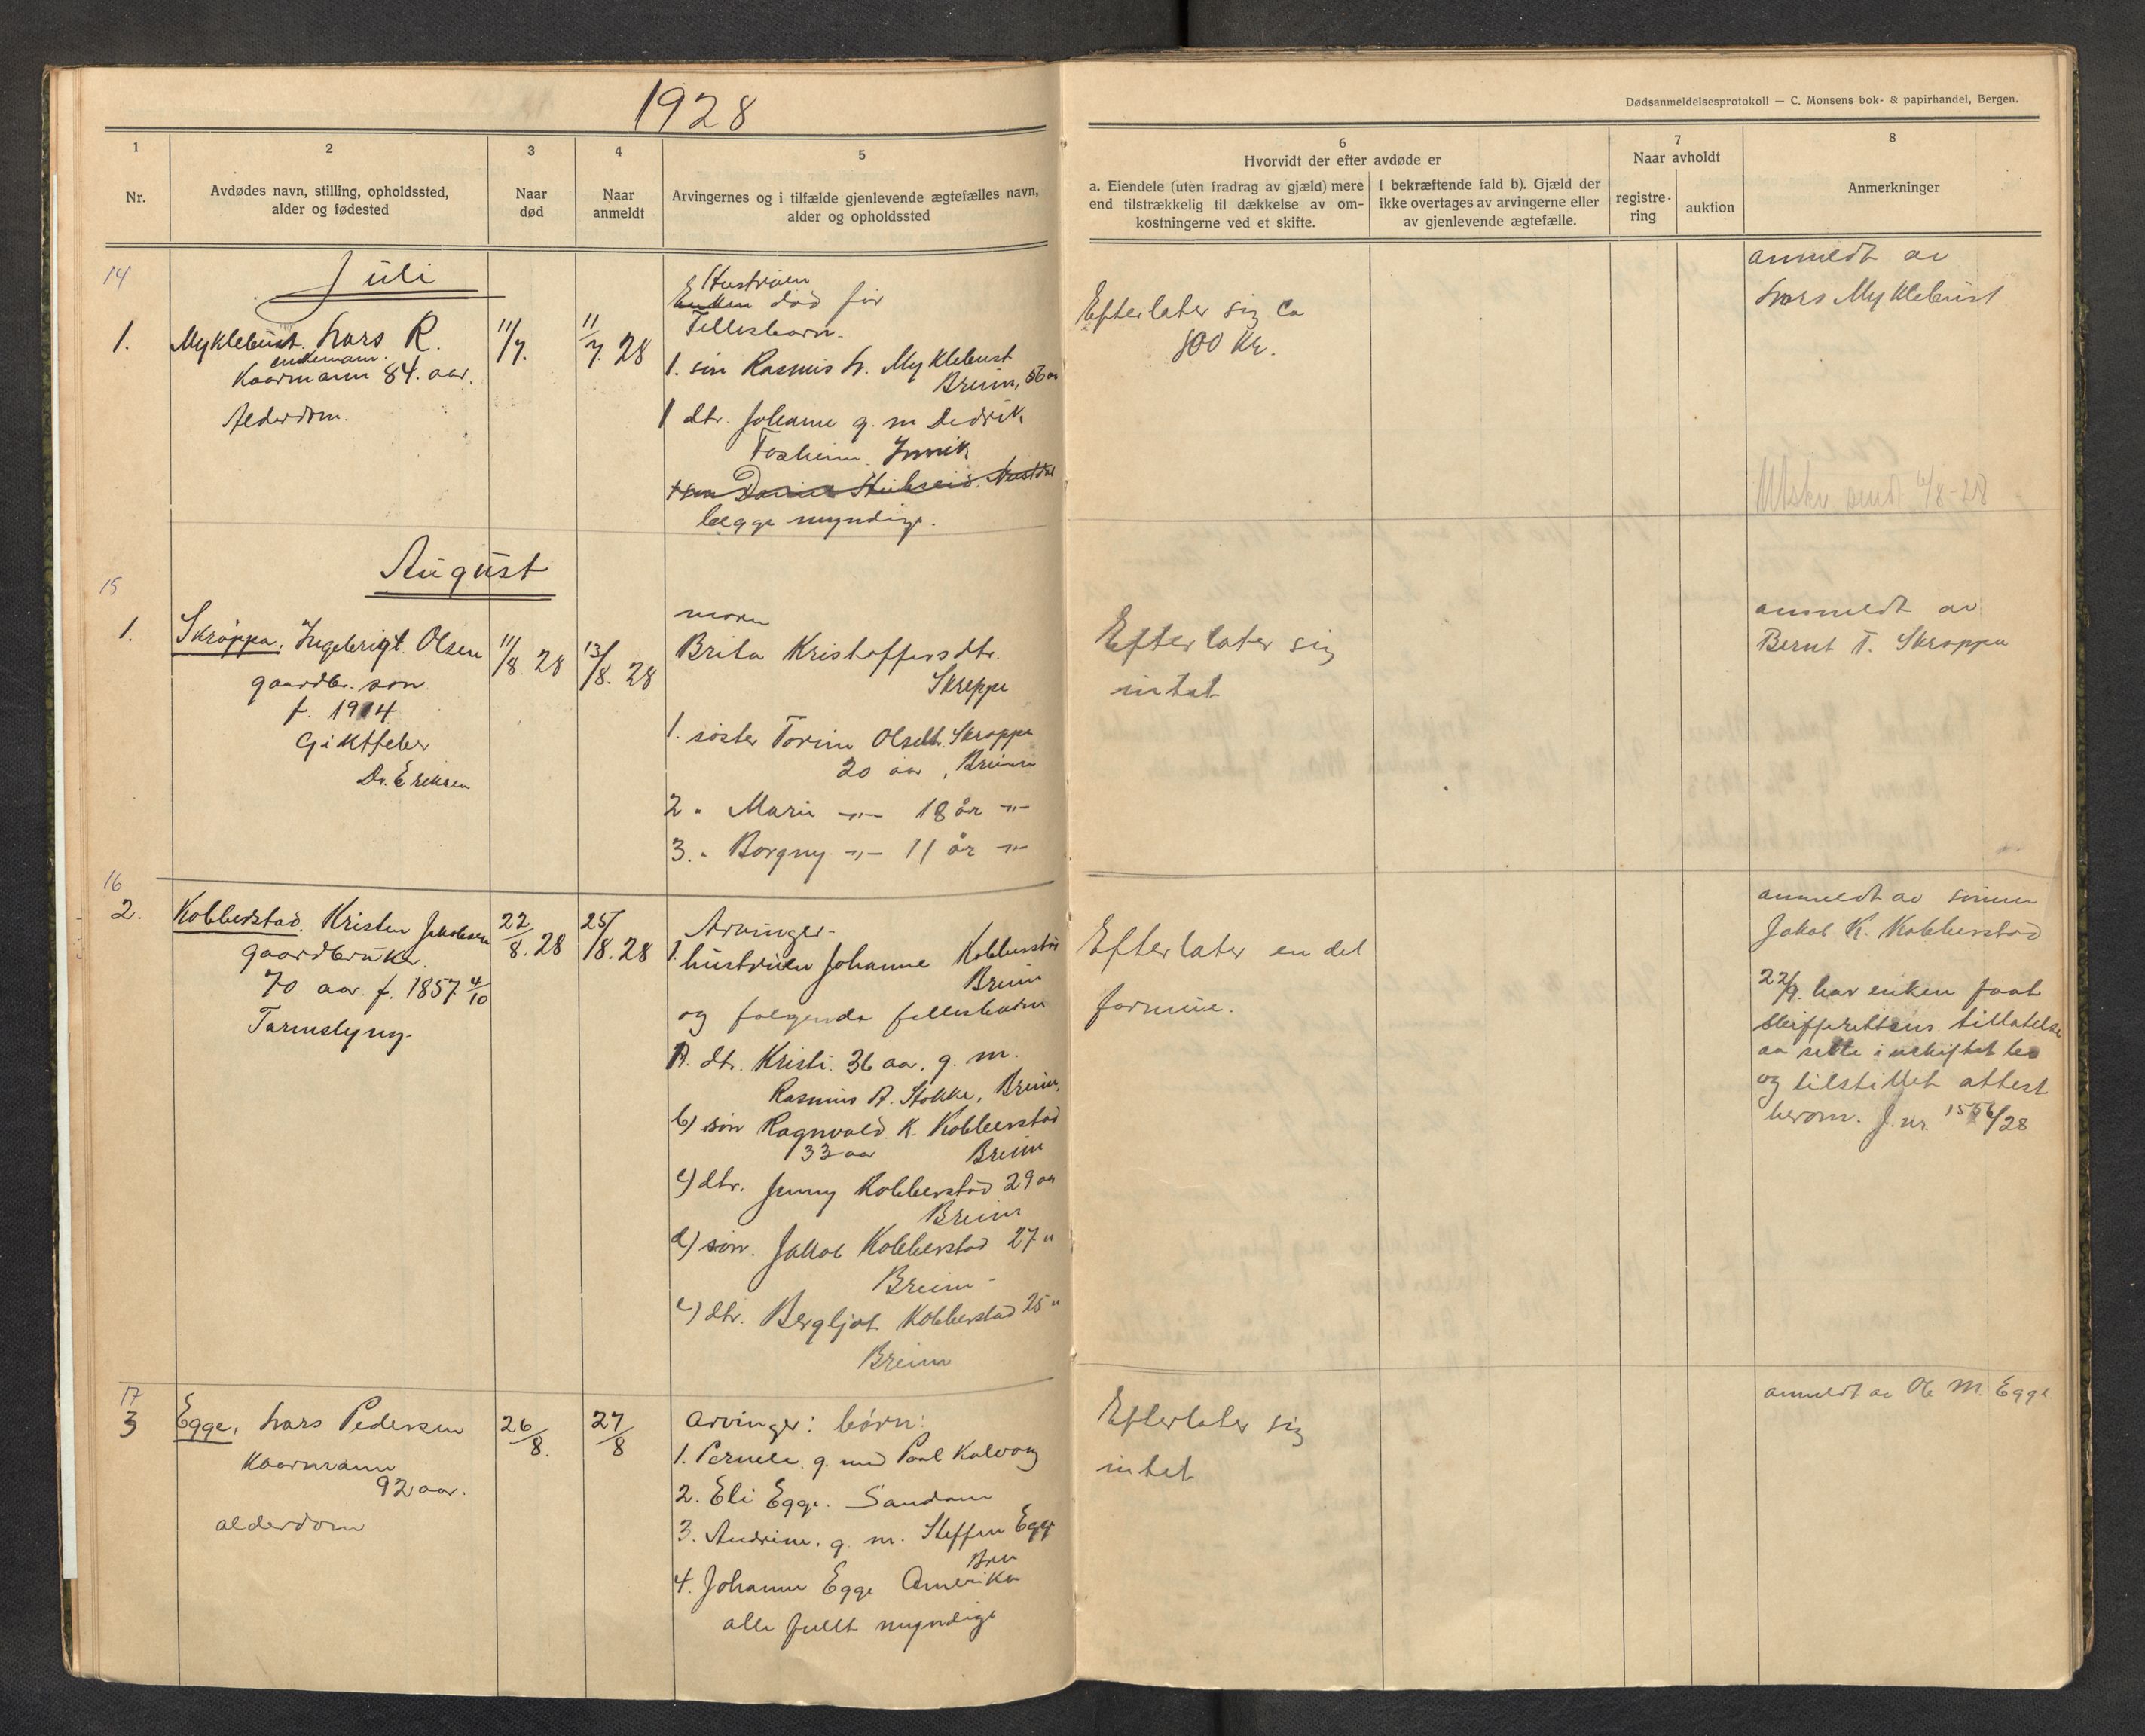 1928
Dødsanmeldelsesprotokoll — C. Monsens bok- & papirhandel, Bergen.
1
Nr.
2
Avdødes navn, stilling, opholdssted,
alder og fødested
3
Naar
død
4
Naar
anmeldt
5
Arvingernes og i tilfælde gjenlevende ægtefælles navn,
alder og opholdssted
6
Hvorvidt der efter avdøde er
a. Eiendele (uten fradrag av gjæld) mere
end tilstrækkelig til dækkelse av om-
kostningerne ved et skifte.
I bekræftende fald b). Gjæld der
ikke overtages av arvingerne eller
av gjenlevende ægtefælle.
7
Naar avholdt
registre-
ring
auktion
8
Anmerkninger
Juli
14
1.
Myklebust. Lars R.
enkemann.
Kaarmann 84. aar.
Alderdom.
11/7.
11/7. 28
Hustruen
Enken død før
Fellesbarn.
1. søn Rasmus L. Myklebust
Breim, 56 aa
1 dtr. Johanne g. m Dedrik
Fosheim. Innvik
begge myndige.
Efterlater sig ca
800 Kr.
anmeldt av
Lars Myklebust
Utskr sendt 6/8-28
August
15
1.
Skrøppa, Ingebrigt Olsen
gaardbr. søn
f. 1914
Giktfeber
Dr. Eriksen
11/8. 28
13/8. 28
moren
Brita Kristoffersdtr.
Skreppa
1. søster Torine Olsdtr. Skrøppa
20 aar, Breim
2 " Marie -"- 18 år -"-
3. " Borgny -"- 11 år -"-
Efterlater sig
intet
anmeldt av
Bernt T. Skroppa
16
2.
Kobberstad. Kristen Jakobsen
gaardbruker.
70 aar. f. 1857 4/10
Tarmslyng.
22/8. 28
25/8. 28
Arvinger.
1. hustruen Johanne Kobberstad
Breim
og følgende fellesbarn
A. dtr. Kristi. 36 aar. g. m.
Rasmus A. Stokke, Breim.
b) søn Ragnvald K. Kobberstad
33 aar Breim
c) dtr. Jenny Kobberstad 29 aar
Breim
d) søn. Jakob Kobberstad 27 "
Breim -
e) dtr. Bergljot Kobberstad 25 "
Breim
Efterlater en del
formue.
anmeldt av sønnen
Jakob K. Kobberstad
22/9. har enken faat
skifterettens tillatelse
aa sitte i uskiftet bo
og tilstillet attest
herom. J. nr. 1556/28
17
3
Egge, Lars Pedersen
Kaarmann
92 aar.
alderdom
26/8.
27/8
Arvinger: børn:
1. Pernele g. med Paal Kalvag
2. Eli Egge. Sandane
3. Andrine. g. m. Steffen Egge
Brei
4. Johanne Egge Amerika
alle fullt myndige
Efterlater sig
intet
anmeldt av Ole M. Egge